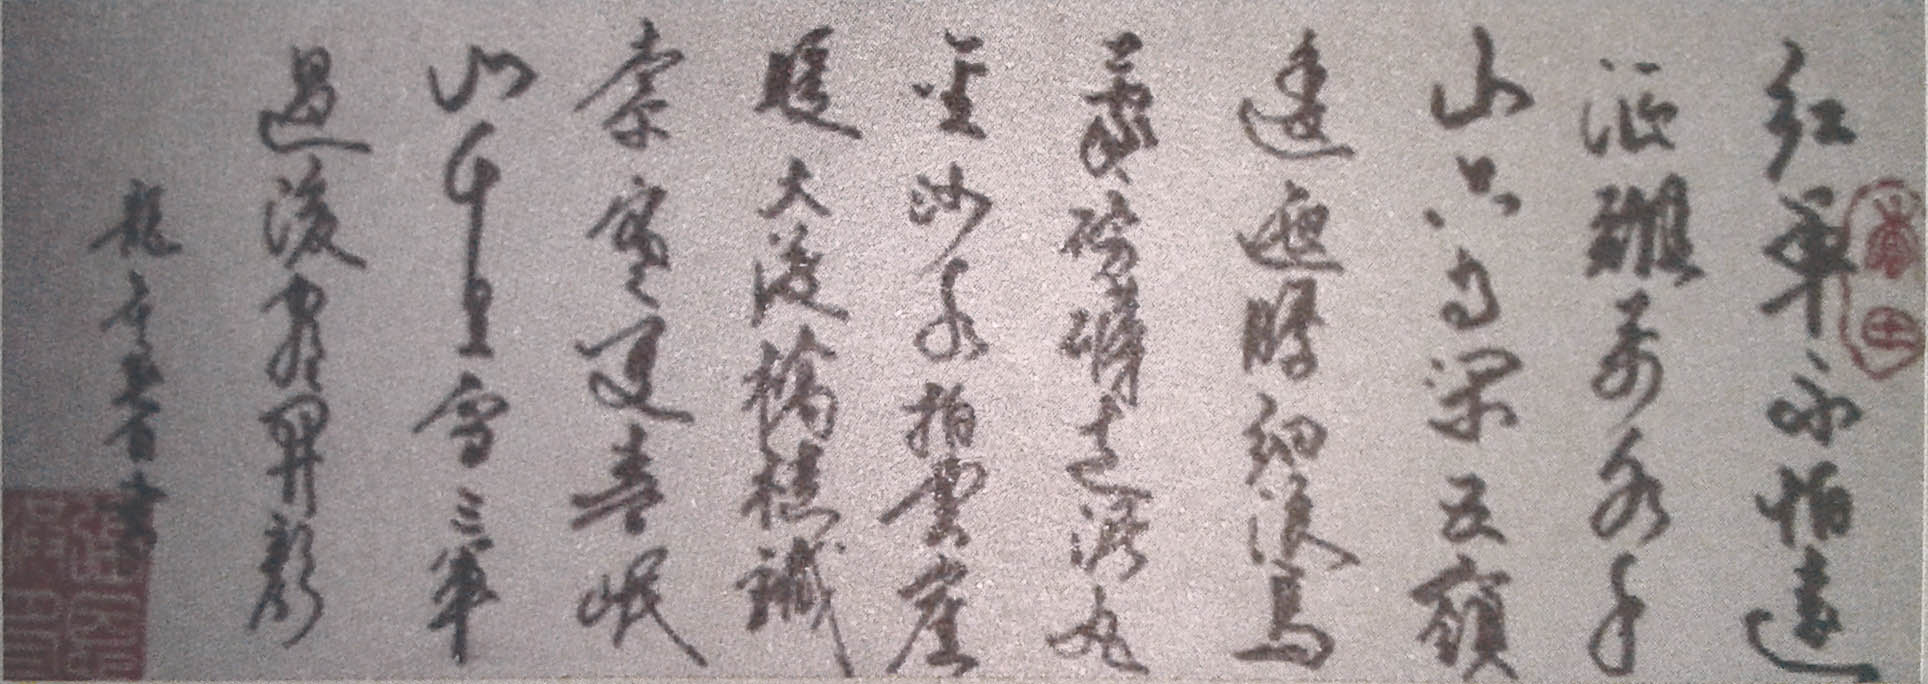 紅軍不怕遠
征難萬水千
山只等閑五嶺
逶迤騰細浪烏
蒙磅礴走泥丸
金沙水拍雲崖
暖大渡橋橫鐵
索寒更喜岷
山千里雪三軍
過後盡開顏
龍
書